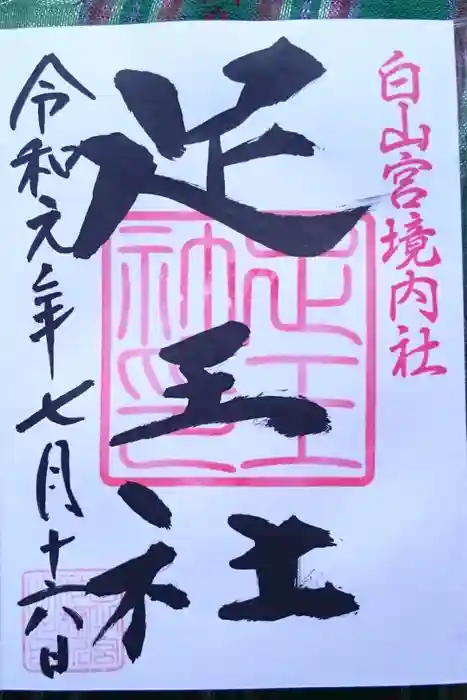 白山宮境内社
足王社
令和元年七月十六日
足王社印